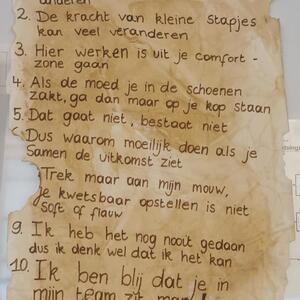 anderen
2. De kracht van kleine stapjes
kan veel veranderen
3. Hier werken is uit je comfort-
zone gaan
4. Als de moed je in de schoenen
zakt, ga dan maar op je kop staan
5. Dat gaat niet, bestaat niet
Dus waarom moeilijk doen als je
samen de uitkomst ziet
Trek maar aan mijn mouw,
je kwetsbaar opstellen is niet
soft of flauw
9. Ik heb het nog nooit gedaan
dus ik denk wel dat ik het kan
10. Ik ben blij dat je in
mijn team zit